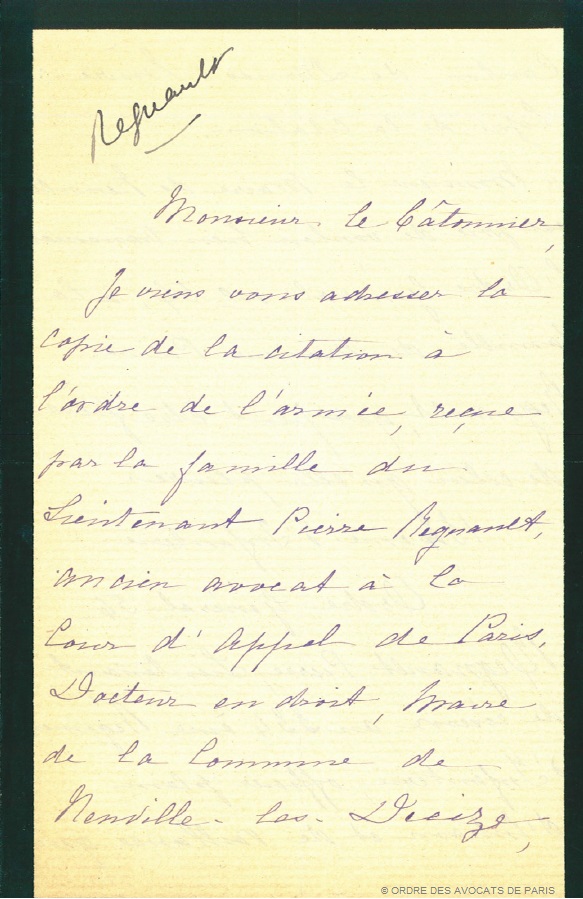 Regnault
Monsieur le Bâtonnier,
Je viens vous adresser la
copie de la citation à
l'ordre de l'armée, reçue
par la famille du
Lieutenant Pierre Regnault,
ancien avocat à la
Cour d'Appel de Paris,
Docteur en droit, Maire
de la Commune de
Neuville-les-Decize,
© ORDRE DES AVOCATS DE PARIS